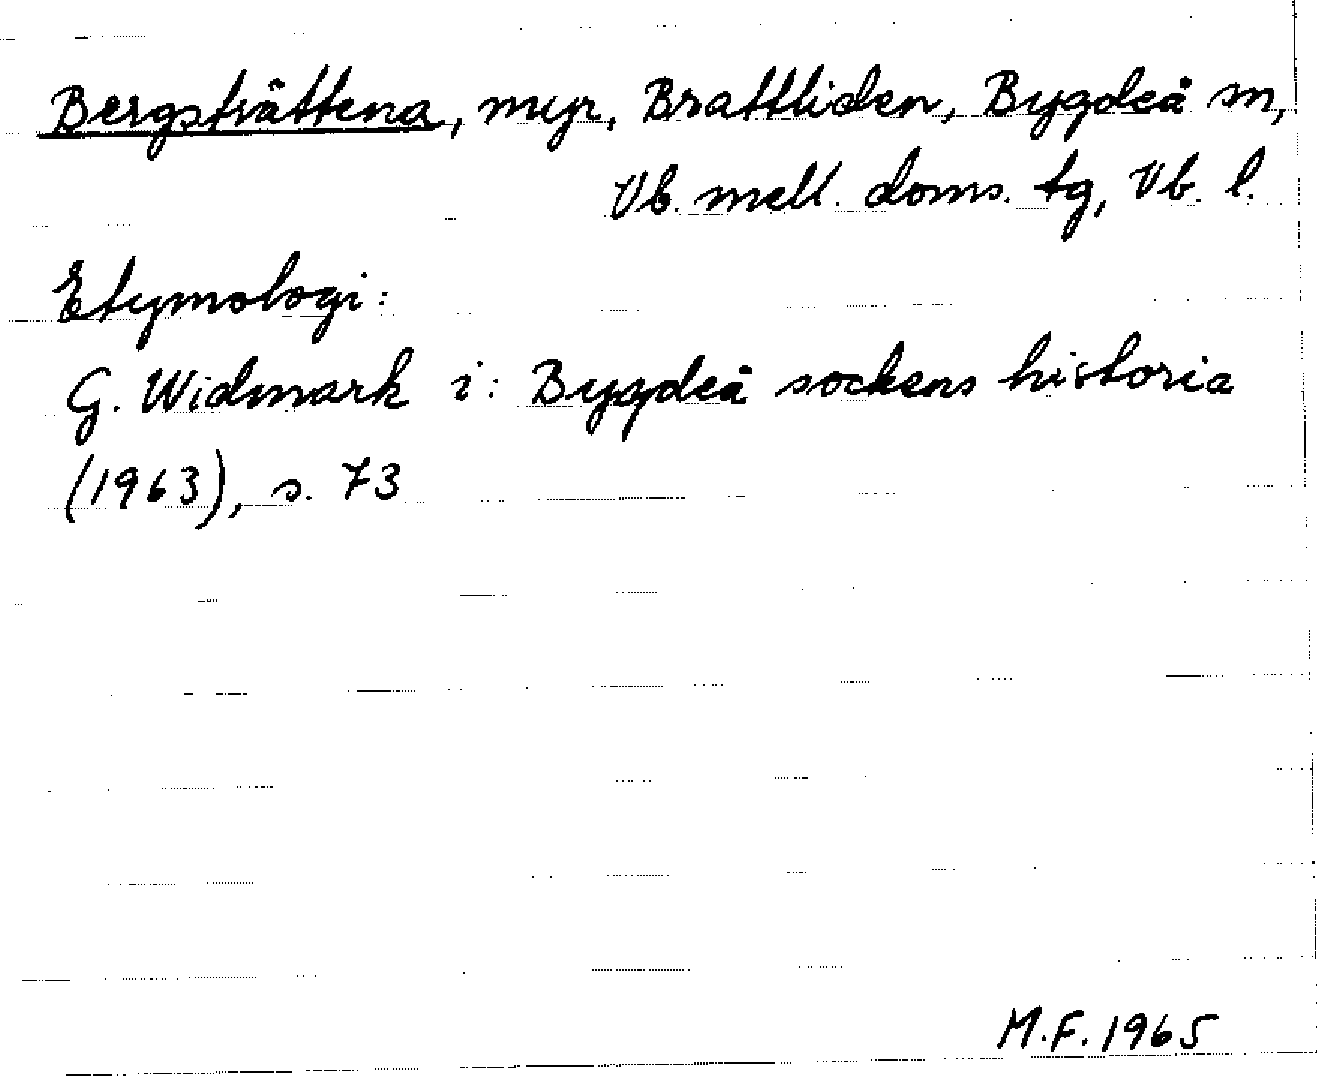 Bergstvättena, myr, Brattliden, Bygdeå sn,
Vb. mell. doms. tg, Vb. l.
Etymologi:
G. Widmark i: Bygdeå sockens historia
(1963), s. 73
M.F. 1965